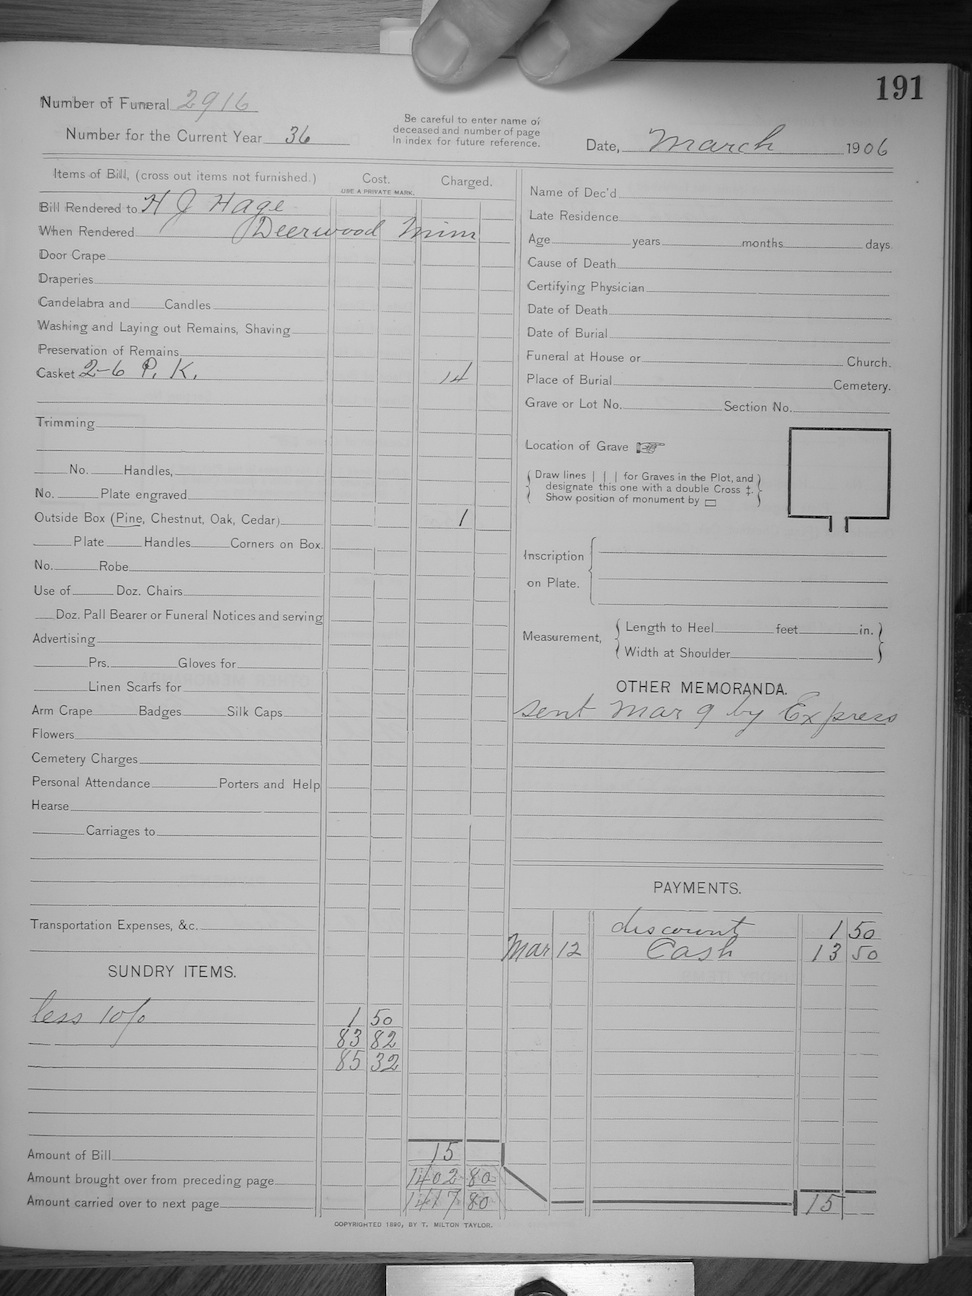 191
Number of Funeral 2916
Number for the Current Year 36
Be careful to enter name of
deceased and number of page
in index for future reference.
Date, March 1906
Items of Bill, (cross out items not furnished.) Cost. Charged.
USE A PRIVATE MARK.
Bill Rendered to H J Hage
When Rendered Deerwood Minn
Door Crape
Draperies
Candelabra and Candles
Washing and Laying out Remains, Shaving
Preservation of Remains
Casket 2-6 P. K. 14
Trimming
No. Handles,
No. Plate engraved
Outside Box (Pine, Chestnut, Oak, Cedar) 1
Plate Handles Corners on Box.
No. Robe
Use of Doz. Chairs
Doz. Pall Bearer or Funeral Notices and serving
Advertising
Prs. Gloves for
Linen Scarfs for
Arm Crape Badges Silk Caps
Flowers
Cemetery Charges
Personal Attendance Porters and Help
Hearse
Carriages to
Transportation Expenses, &c.
SUNDRY ITEMS.
less 10% 1 50
83 82
85 32
Amount of Bill 15
Amount brought over from preceding page 1402 80
Amount carried over to next page 1417 80
Name of Dec'd
Late Residence
Age years months days.
Cause of Death
Certifying Physician
Date of Death
Date of Burial
Funeral at House or Church.
Place of Burial Cemetery.
Grave or Lot No. Section No.
Location of Grave ☞
Draw lines | | | for Graves in the Plot, and
designate this one with a double Cross ‡.
Show position of monument by ▭
Inscription
on Plate.
Measurement, Length to Heel feet in.
Width at Shoulder
OTHER MEMORANDA.
sent Mar 9 by Express
PAYMENTS.
discount 1 50
Mar 12 Cash 13 50
15
COPYRIGHTED 1890, BY T. MILTON TAYLOR.